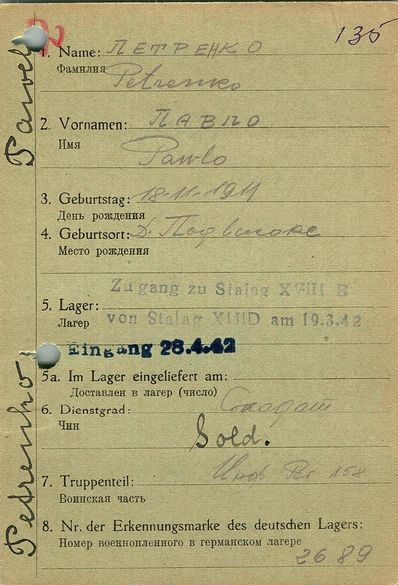 135
1. Name: ПЕТРЕНКО
Фамилия Petrenko
2. Vornamen: ПАВЛО
Имя Pawlo
3. Geburtstag: 18-11-1911
День рождения
4. Geburtsort: д. Подвысокое
Место рождения
Zugang zu Stalag XVIII B
5. Lager:
von Stalag XIIID am 19.3.42
Лагер
Eingang 28.4.42
5a. Im Lager eingeliefert am:
Доставлен в лагер (число)
6. Dienstgrad: Солдат
Чин
Sold.
7. Truppenteil: Инф Рег 158
Воинская часть
8. Nr. der Erkennungsmarke des deutschen Lagers:
Номер военнопленного в германском лагере
2689
Petrenko Pawel